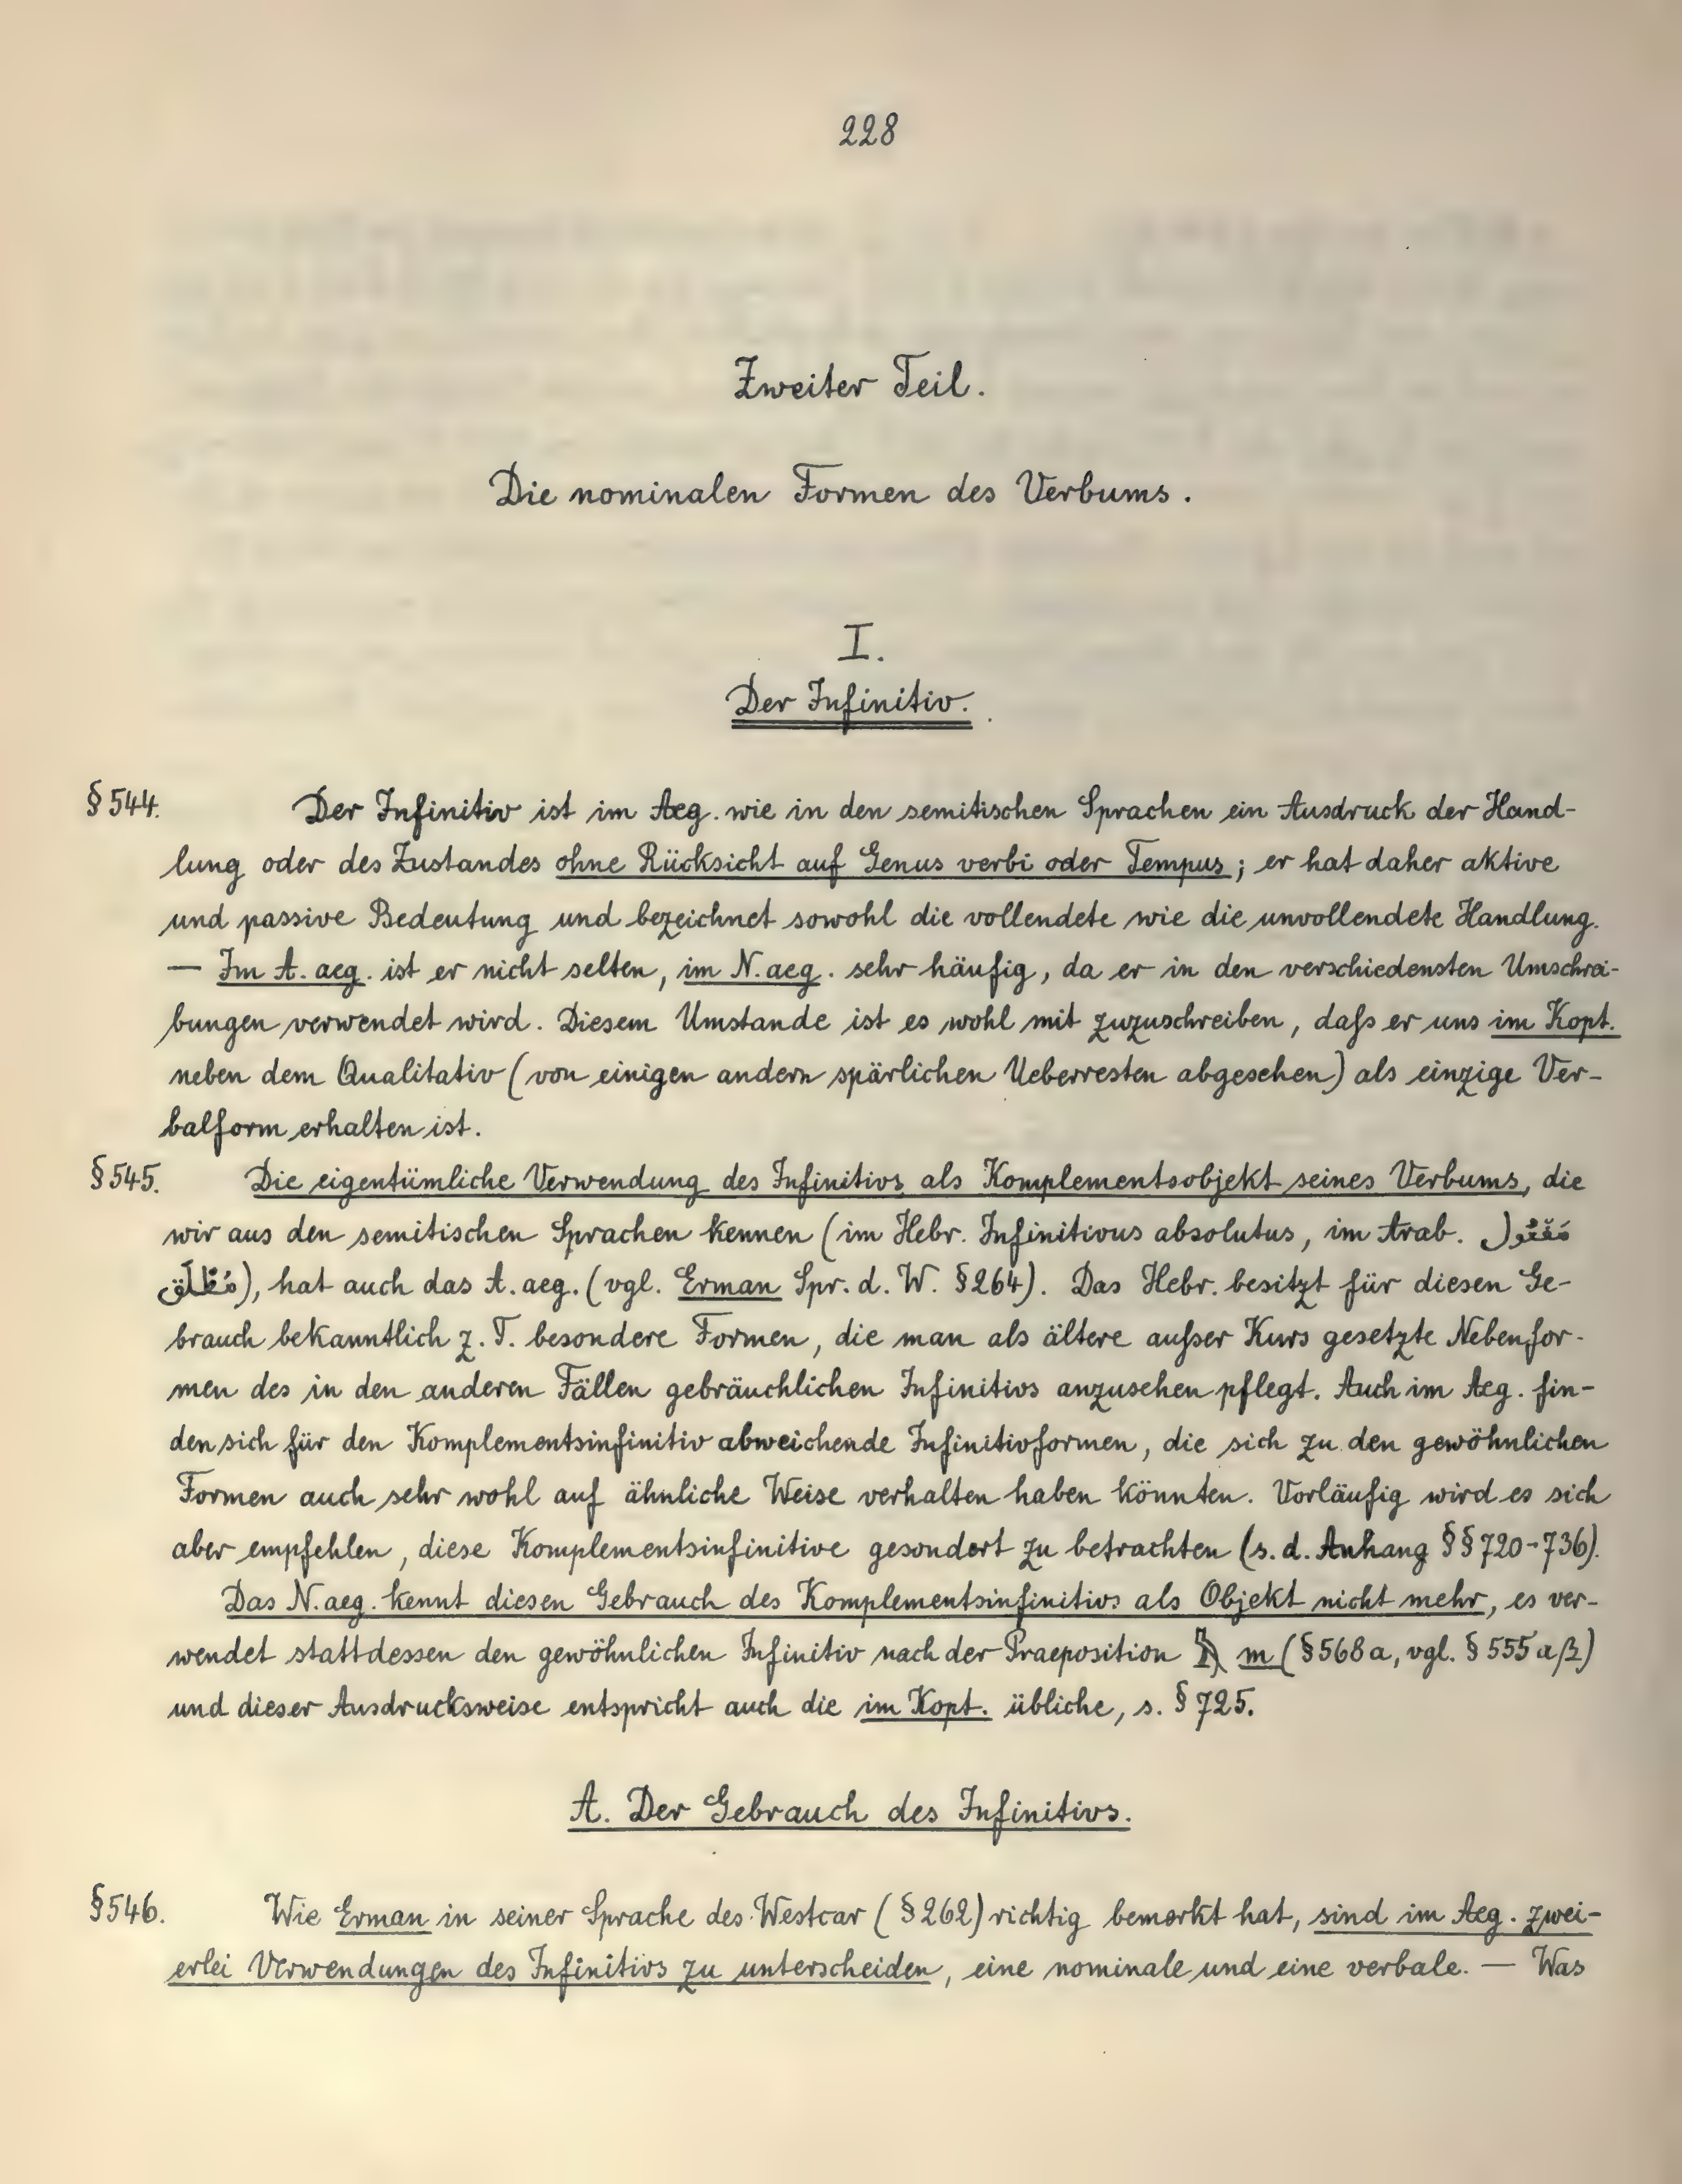 228
Zweiter Teil.
Die nominalen Formen des Verbums.
I.
Der Infinitiv.
§ 544. Der Infinitiv ist im Aeg. wie in den semitischen Sprachen ein Ausdruck der Hand-
lung oder des Zustandes ohne Rücksicht auf Genus verbi oder Tempus; er hat daher aktive
und passive Bedeutung und bezeichnet sowohl die vollendete wie die unvollendete Handlung.
— Im A. aeg. ist er nicht selten, im N. aeg. sehr häufig, da er in den verschiedensten Umschrei-
bungen verwendet wird. Diesem Umstande ist es wohl mit zuzuschreiben, daſs er uns im Kopt.
neben dem Qualitativ (von einigen andern spärlichen Ueberresten abgesehen) als einzige Ver-
balform erhalten ist.
§ 545. Die eigentümliche Verwendung des Infinitivs als Komplementsobjekt seines Verbums, die
wir aus den semitischen Sprachen kennen (im Hebr. Infinitivus absolutus, im Arab.
), hat auch das A. aeg. (vgl. Erman Spr. d. W. § 264). Das Hebr. besitzt für diesen Ge-
brauch bekanntlich z. T. besondere Formen, die man als ältere auſser Kurs gesetzte Nebenfor-
men des in den anderen Fällen gebräuchlichen Infinitivs anzusehen pflegt. Auch im Aeg. fin-
den sich für den Komplementsinfinitiv abweichende Infinitivformen, die sich zu den gewöhnlichen
Formen auch sehr wohl auf ähnliche Weise verhalten haben könnten. Vorläufig wird es sich
aber empfehlen, diese Komplementsinfinitive gesondert zu betrachten (s. d. Anhang §§ 720-736).
Das N. aeg. kennt diesen Gebrauch des Komplementsinfinitivs als Objekt nicht mehr, es ver-
wendet stattdessen den gewöhnlichen Infinitiv nach der Praeposition 𓅓 m (§ 568a, vgl. § 555aβ)
und dieser Ausdrucksweise entspricht auch die im Kopt. übliche, s. § 725.
A. Der Gebrauch des Infinitivs.
§ 546. Wie Erman in seiner Sprache des Westcar (§ 262) richtig bemerkt hat, sind im Aeg. zwei-
erlei Verwendungen des Infinitivs zu unterscheiden, eine nominale und eine verbale. — Was